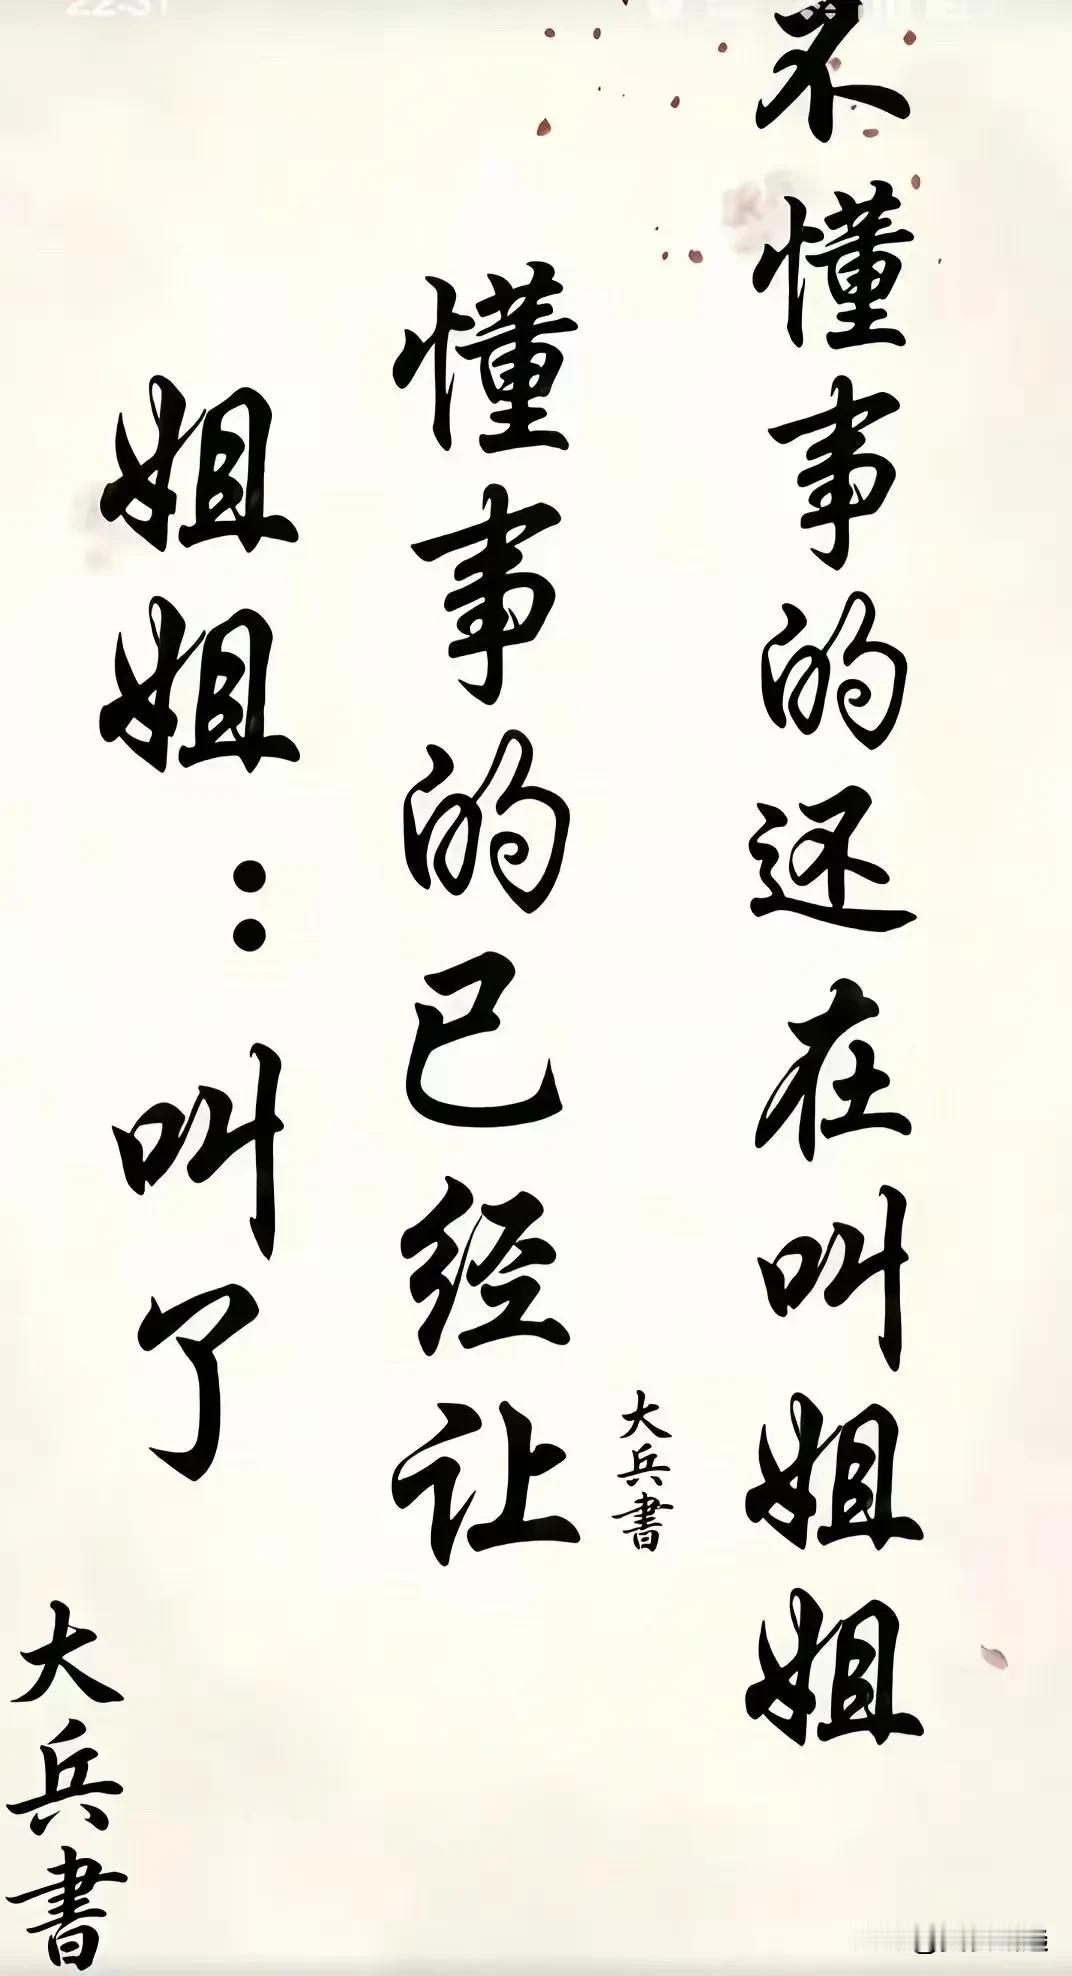 不懂事的还在叫姐姐
懂事的已经让
姐姐：叫了
大兵書
大兵書
22:31